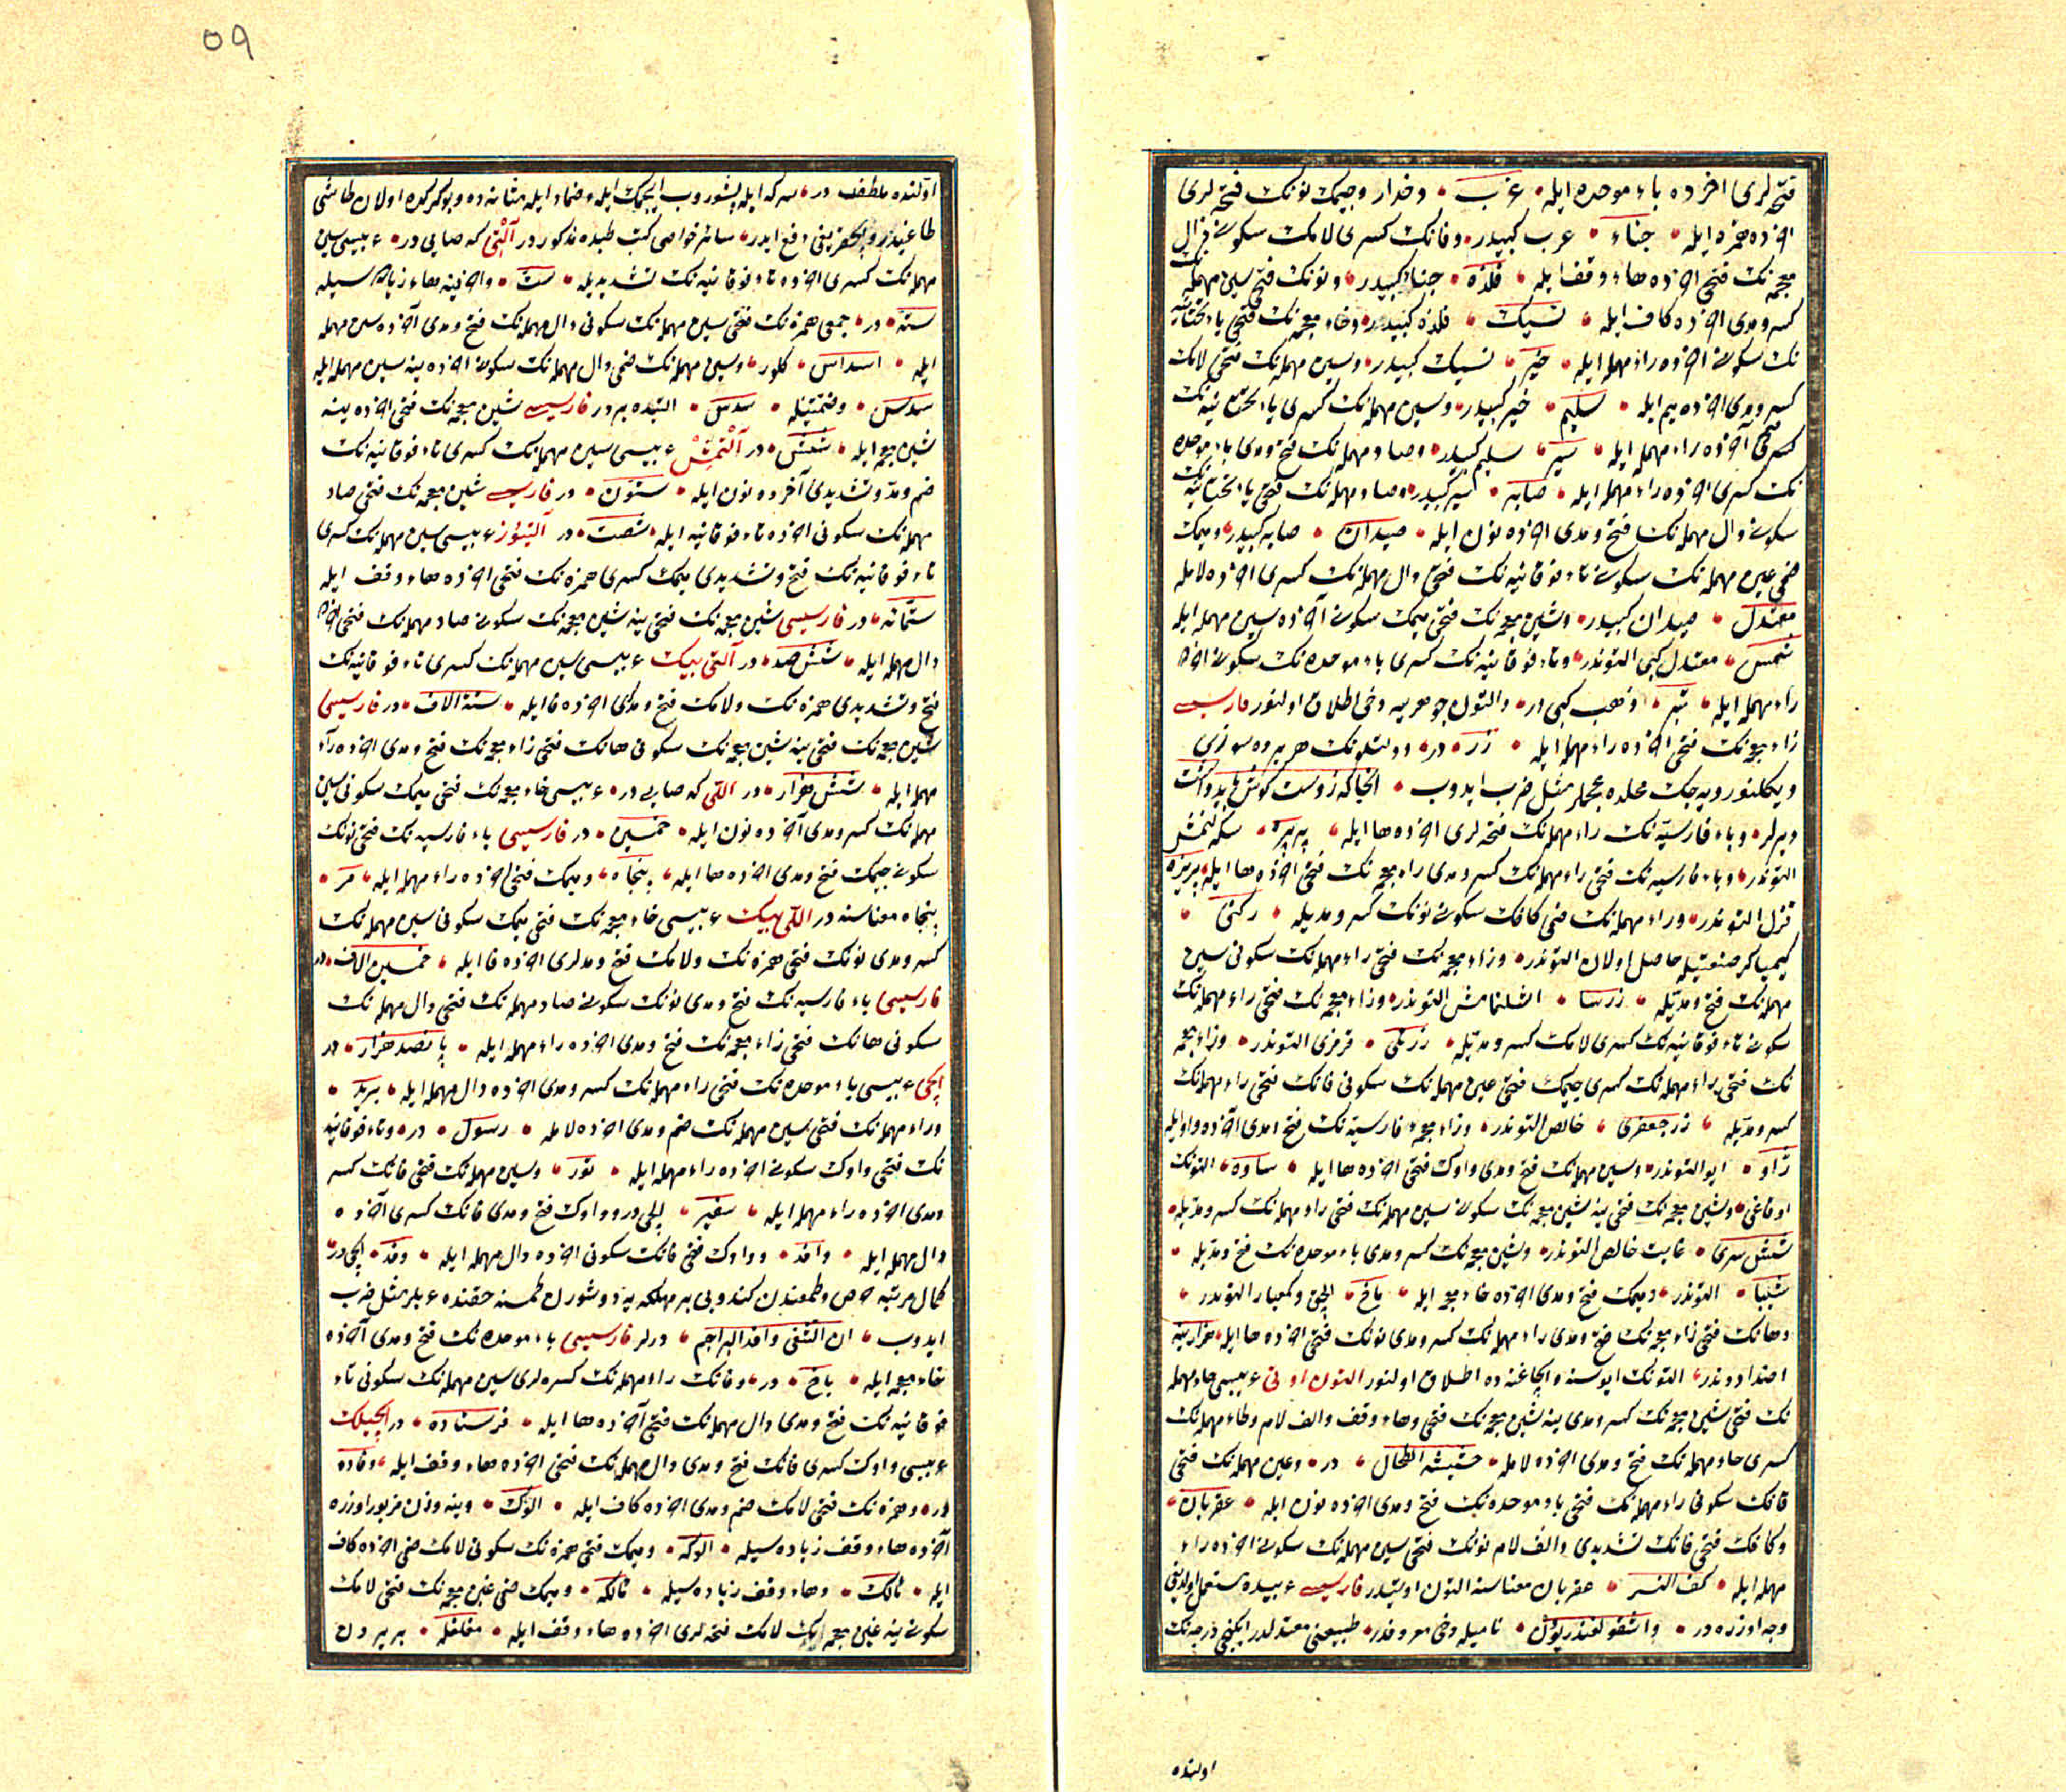 فتحه لری اخرده باء موحده ایله غرب دخدار وجیمک نونک فتحه لری
اخرده همزه ایله جناء غرب کبیدر وفانک کسری لامک سکونی ذال
معجمه نک فتحی اخرده هاء وقف ایله فلذه جناء کبیدر ونونک فتحی سین مهمله
کسر ومدی اخرده کاف ایله نسیک فلذه کبیدر وخاء معجمه نک فتحی یاء تحتانیه
نک سکونی اخرده راء مهمله ایله خیر نسیک کبیدر وسین مهمله نک فتحی لامک
کسر ومدی اخرده میم ایله سلیم خیر کبیدر وسین مهمله نک کسری یاء تحتانیه نک
اخرده راء مهمله ایله سیر سلیم کبیدر وصاد مهمله نک فتح ومدی باء موحده
نک کسری اخرده راء مهمله ایله سیر کبیدر وصاد مهمله نک فتحی یاء تحتانیه نک
سکونی دال مهمله نک فتح ومدی اخرده نون ایله صیدان کبیدر ومیمک
ضمی عین مهمله نک سکونی تاء فوقانیه نک فتحی دال مهمله نک کسری اخرده لامله
معتدل صیدان کبیدر وشین معجمه نک فتحی میمک سکونی آخرده سین مهمله ایله
شمس معتدل کبی التوندر وتاء فوقانیه نک کسری باء موحده نک سکونی اخرده
راء مهمله ایله تبر ذهب کبی در والتون جوهرینه دخی اطلاق اولنور فارسیسی
زاء معجمه نک فتحی اخرده راء مهمله ایله زر در دولتلونک هر یرده سوزی
دیکلنور ویه جک محلده عجملر مثل ضرب ایدوب
دیرلر وباء فارسیه نک راء مهمله نک فتحه لری اخرده ها ایله پره سکه لنمش
التوندر وباء فارسیه نک فتحی راء مهمله نک کسر ومدی زاء معجمه نک فتحی اخرده ها ایله پریزه
قزل التوندر وراء مهمله نک ضمی کافک سکونی نونک کسر ومدیله رکنی
کیمیاکر صنعتیله حاصل اولان التوندر وزاء معجمه نک فتحی راء مهمله نک سکونی سین
مهمله نک فتح ومدیله زرسا التوندر وزاء معجمه نک فتحی راء مهمله نک
نک فتحی راء مهمله نک کسری جیمک فتحی عین مهمله نک سکونی فانک فتحی راء مهمله نک
کسر ومدیله زر جعفری خالص التوندر وزاء معجمه فارسیه نک فتح ومدی آخرده واو ایله
ژاو ایو التوندر وسین مهمله نک فتح ومدی واوک فتحی اخرده ها ایله ساوه التونک
اوفاغی وشین معجمه نک فتحی ینه شین معجمه نک سکونی سین مهمله نک فتحی راء مهمله نک کسر ومدیله
شش سری غایت خالص التوندر وشین معجمه نک کسر ومدی باء موحده نک فتح ومدیله
شیبا التوندر ومیمک فتح ومدی اخرده خاء معجمه ایله ماخ التوندر
اضداددندر التونک ایوسنه والچاغنه ده اطلاق اولنور التون اوتی عربیسی حاء مهمله
نک فتحی شین معجمه نک کسر ومدی ینه شین معجمه نک فتحی وهاء وقف والف لام وطاء مهمله نک
کسری حاء مهمله نک فتح ومدی اخرده لامله حشیشة الطحال در وعین مهمله نک فتحی
قافک سکونی راء مهمله نک فتحی باء موحده نک فتح ومدی اخرده نون ایله عقربان
وکافک فتحی فانک تشدیدی والف لام نونک فتحی سین مهمله نک سکونی اخرده راء
مهمله ایله کف النسر عقربان معناسنه التون اوتیدر فارسیسی عربیده مستعمل اولدیغی
وجه اوزره در واسقولفندریون نامیله دخی معروفدر طبیعتی معتدلدر ایکنجی درجه نک
اولنده
٥٩
اولنده ملطفدر سرکه ایله پشوروب ایچمک ایله وضماد ایله مثانه ده وبوکرکده اولان طاشی
طاغیدر دفع ایدر سائر خواصی کتب طبده مذکوردر آلتی که صایی در عربیسی سین
مهمله نک کسری اخرده تاء فوقانیه نک تشدیدیله ست واخرینه هاء زیاده سیله
ستة در جمعی همزه نک فتحی سین مهمله نک سکونی دال مهمله نک فتح ومدی آخرده سین مهمله
ایله اسداس کلور وسین مهمله نک ضمی دال مهمله نک سکونی اخرده ینه سین مهمله ایله
سدس وضمتینله سدس التیده بردر فارسیسی شین معجمه نک فتحی اخرده ینه
شین معجمه ایله شش در آلتمش عربیسی سین مهمله نک کسری تاء فوقانیه نک
ضم ومد وتشدیدی آخرده نون ایله ستون در فارسیسی شین معجمه نک فتحی صاد
مهمله نک سکونی اخرده تاء فوقانیه ایله شصت در آلتیوز عربیسی سین مهمله نک کسری
تاء فوقانیه نک فتح وتشدیدی میمک کسری همزه نک فتحی اخرده هاء وقف ایله
ستمائه در فارسیسی شین معجمه نک فتحی ینه شین معجمه نک سکونی صاد مهمله نک فتحی اخرده
دال مهمله ایله شش صد در آلتی بیک عربیسی سین مهمله نک کسری تاء فوقانیه نک
فتح وتشدیدی همزه نک ولامک فتح ومدی اخرده فا ایله ستة الاف در فارسیسی
شین معجمه نک فتحی ینه شین معجمه نک سکونی هانک فتحی زاء معجمه نک فتح ومدی اخرده راء
مهمله ایله شش هزار در اللی که صایی در عربیسی خاء معجمه نک فتحی میمک سکونی سین
مهمله نک کسر ومدی آخرده نون ایله خمسین در فارسیسی باء فارسیه نک فتحی نونک
سکونی جیمک فتح ومدی اخرده ها ایله پنجاه ومیمک فتحی اخرده راء مهمله ایله مر
پنجاه معناسنه در اللی بیک عربیسی خاء معجمه نک فتحی میمک سکونی سین مهمله نک
کسر ومدی نونک فتحی همزه نک ولامک فتح ومدلری اخرده فا ایله خمسین الاف در
فارسیسی باء فارسیه نک فتح ومدی نونک سکونی صاد مهمله نک فتحی دال مهمله نک
سکونی هانک فتحی زاء معجمه نک فتح ومدی اخرده راء مهمله ایله پانصد هزار در
ایلچی عربیسی باء موحده نک فتحی راء مهمله نک کسر ومدی اخرده دال مهمله ایله برید
وراء مهمله نک فتحی سین مهمله نک ضم ومدی اخرده لامله رسول در وتاء فوقانیه
نک فتحی واوک سکونی اخرده راء مهمله ایله تور وسین مهمله نک فتحی فانک کسر
ومدی اخرده راء مهمله ایله سفیر ایلچی در وواوک فتح ومدی فانک کسری آخرده
دال مهمله ایله وافد وواوک فتحی فانک سکونی اخرده دال مهمله ایله وفد ایلچی در
کمال مرتبه حرص وطمعندن کندویی بر مهلکه یه دوشورن کمسنه حقنده عربلر مثل ضرب
ایدوب ان الشقی وافد البراجم درلر فارسیسی باء موحده نک فتح ومدی آخرده
خاء معجمه ایله باخ در وفانک راء مهمله نک کسره لری سین مهمله نک سکونی تاء
فوقانیه نک فتح ومدی دال مهمله نک فتحی آخرده ها ایله فرستاده در ایلچیلک
عربیسی واوک کسری فانک فتح ومدی دال مهمله نک فتحی اخرده هاء وقف ایله وفاده
در وهمزه نک فتحی لامک ضم ومدی اخرده کاف ایله الوک وینه وزن مزبور اوزره
آخرده هاء وقف زیاده سیله الوکه ومیمک فتحی همزه نک سکونی لامک ضمی اخرده کاف
ایله مألک وهاء وقف زیاده سیله مألکه ومیمک ضمی غین معجمه نک فتحی لامک
سکونی ینه غین معجمه نک لامک فتحه لری اخرده هاء وقف ایله مغلغله بر یردن